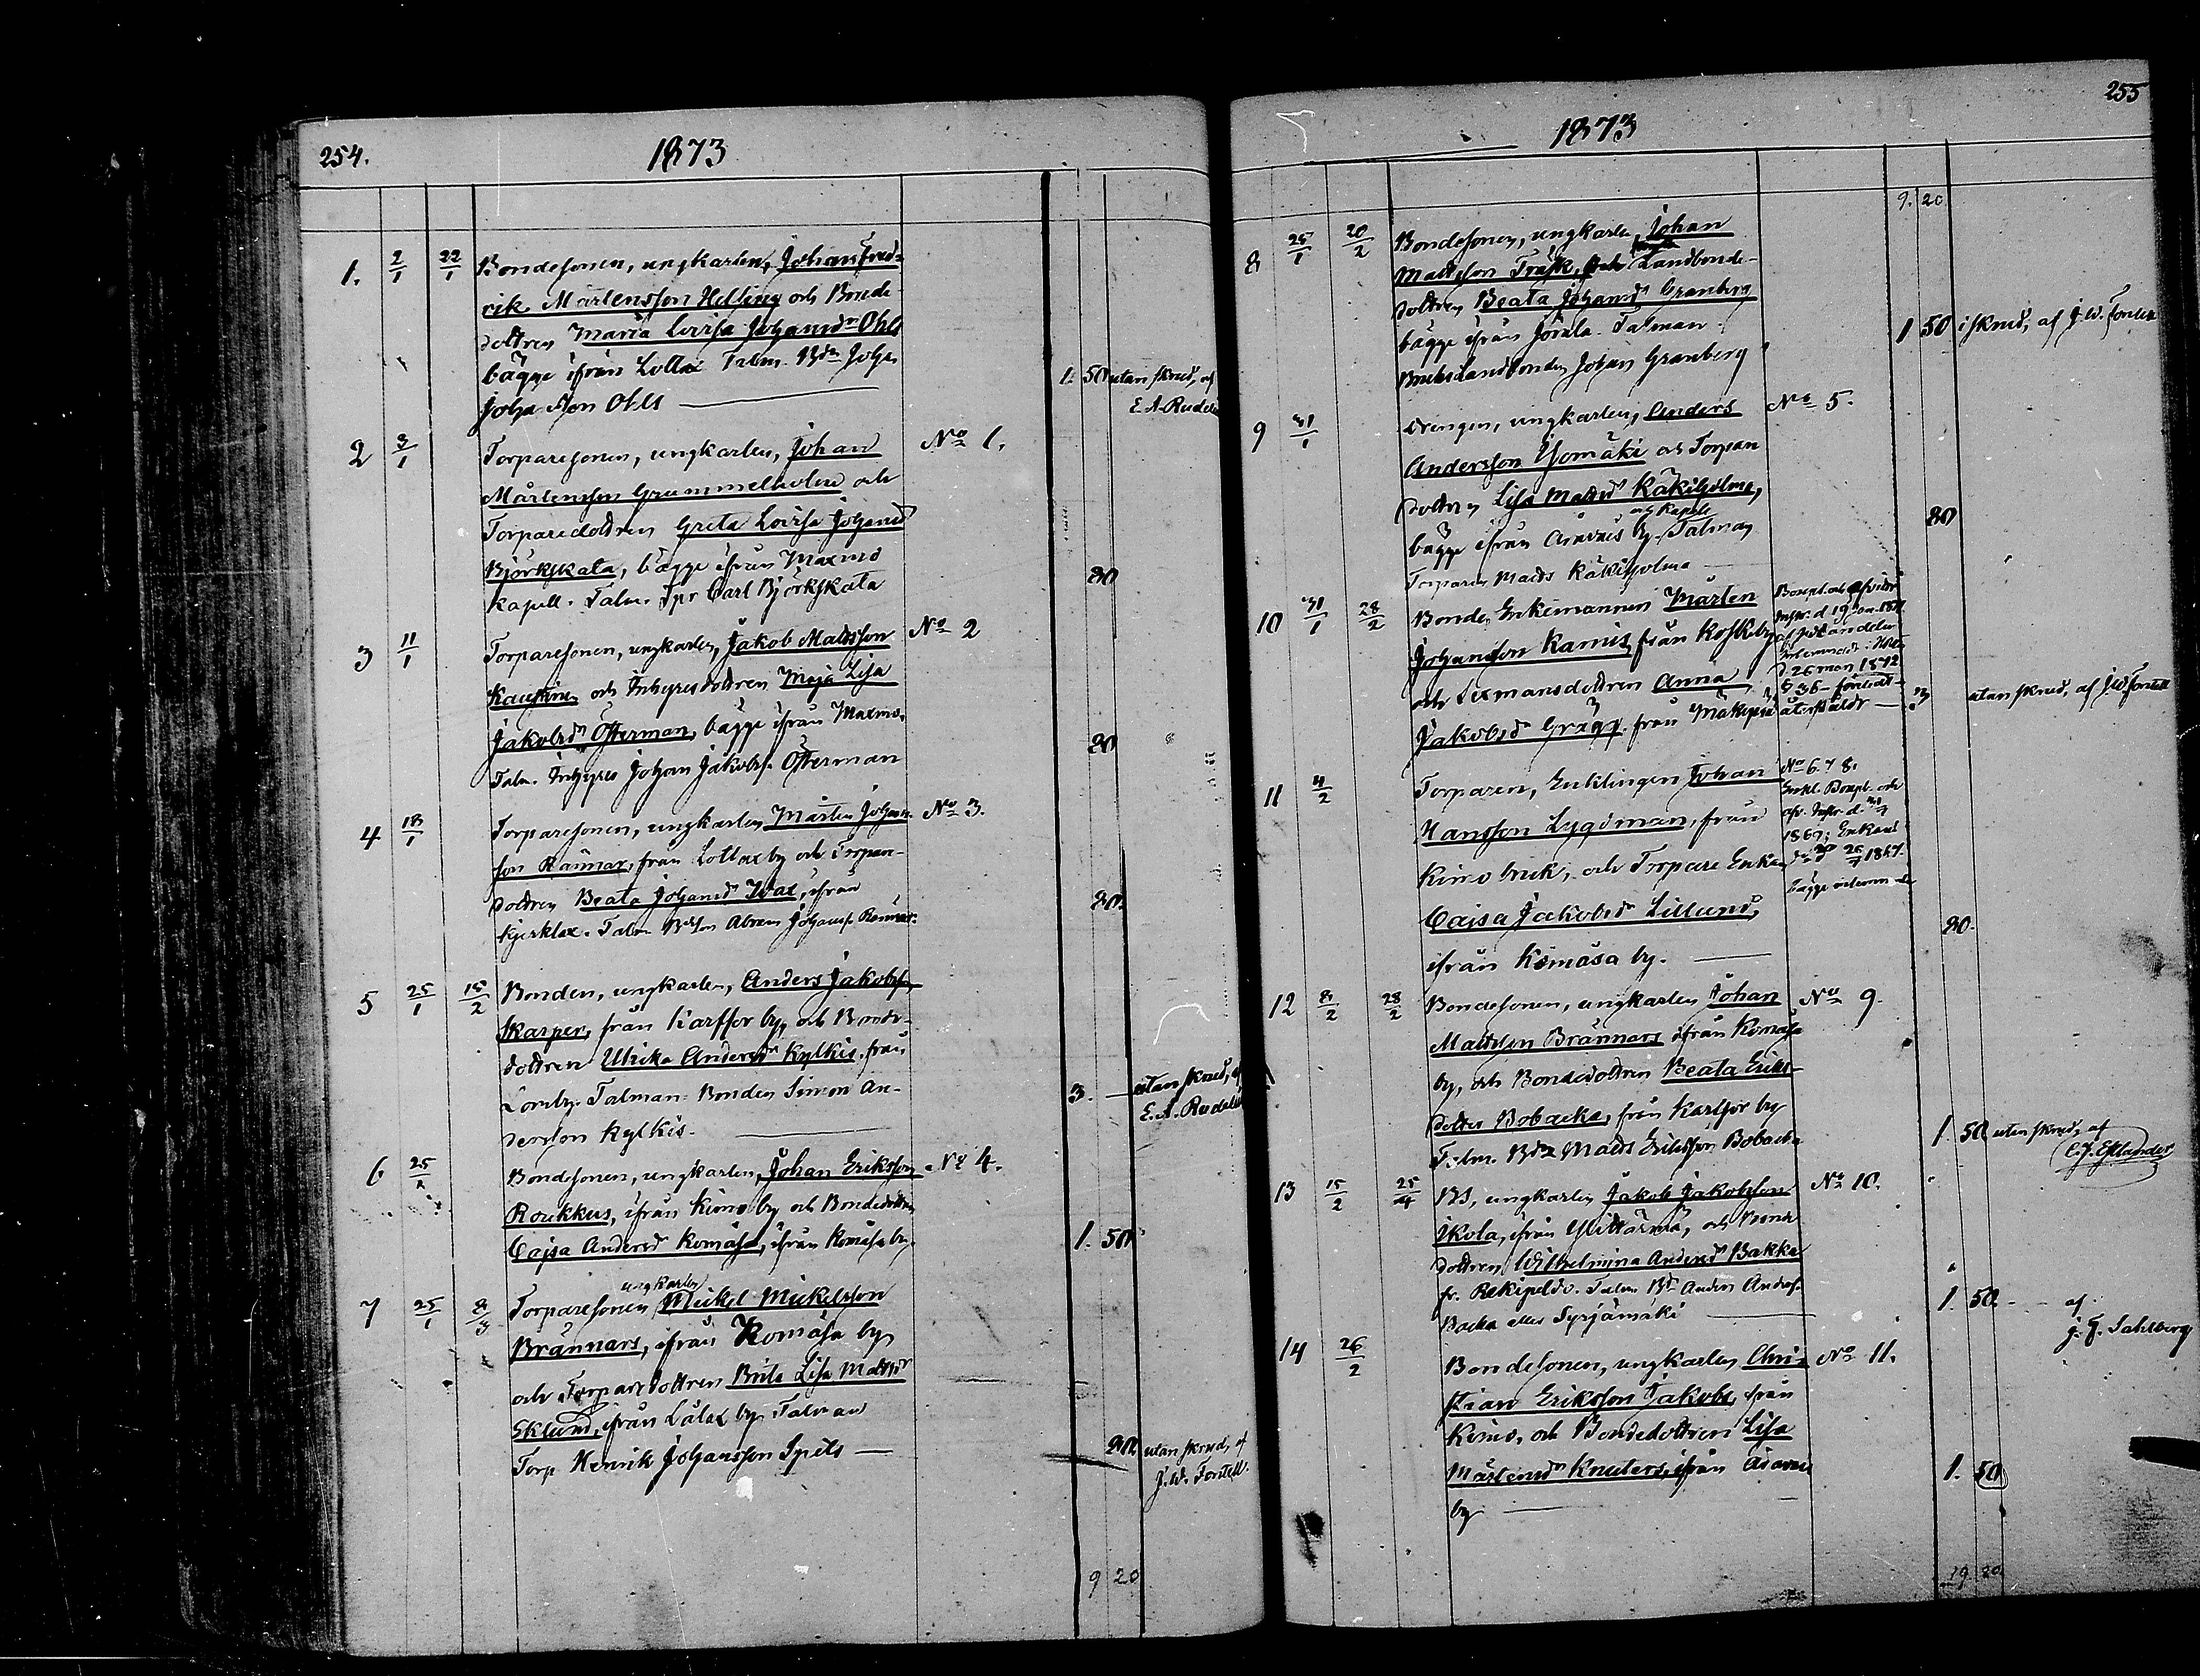 254.
1873
1. 2/1 22/1 Bondesonen, ungkarlen, Johan Fred-
rik Mårtensson Helling och Bonde-
dottren Maria Lovisa Johansdr Ohls
bägge ifrån Lotlax Talm. Bdn Johan
Johansson Ohls
1. 50 utan skrud, af
E. A.
2 3/1 Torparesonen, ungkarlen, Johan No 1.
Mårtensson Grummelholm och
Torparedottren Greta Lovisa Johansdr
Björkskata, bägge ifrån Maxmo
Kapell. Talm. Tpr Carl Björkskata
80
3 11/1 Torparesonen, ungkarlen, Jakob Mattsson No 2
och Inhyresdottren Maja Lisa
Jakobsdr Österman, bägge ifrån Maxmo.
Talm. Inhyses Johan Jakobss. Österman
80
4 18/1 Torparesonen, ungkarlen Mårten Johans- No 3.
son Rännar, från Lotlax by och Torpare-
dottren Beata Johansdr Wax, ifrån
Kjerklax. Talm Abram Johanss. Rännar.
80.
5 25/1 15/2 Bonden, ungkarlen, Anders Jakobsson
Kasper, från Karfsor by, och Bonde-
dottren Ulrika Andersdr Kylkis, från
Lomby. Talman Bonden Simon An-
dersson Kylkis.
3. — utan skrud, af
E. A.
6 25/1 Bondesonen, ungkarlen, Johan Eriksson No 4.
Roukkus, ifrån Kimo by och Bondedottren
Cajsa Andersdr Komåsa, ifrån Komåsa by.
1. 50
7 25/1 2/3 Torparesonen ungkarlen Mickel Mickelsson
Brännars, ifrån Komåsa by
och Torparedottren Brita Lisa Mattsdr
Eklund, ifrån Lålax by. Talman
Torp Henrik Johansson Spets —
80. utan skrud, af
J. W. Fontell.
9 20
255
1873
9. 20
8 25/1 20/2 Bondesonen, ungkarlen, Johan
Mattsson Träsk, och Landbonde-
dottren Beata Johansdr Granberg
bägge ifrån Jörala. Talman
Brukslandbonden Johan Granberg
1 50 i skrud, af J. W. Fontell
9 31/1 Drengen, ungkarlen, Anders No 5.
Andersson Yömäki och Torpare-
dottren Lisa Mattsdr Käkiholma,
bägge ifrån Aravais by. Talman
Torparen Matts Käkiholma
80
10 31/1 28/2 Bonde Enkemannen Mårten
Johansson Kamis, från Koskeby
och Lexmansdottren Anna
Jakobsdr Grägg, från Makipää
3 utan skrud, af J W Fontell
11 4/2 Torparen, Enklingen Johan No 6. 7 8.
Hansson Lygdman, från
Kimo bruk, och Torpare Enkan
Cajsa Jakobsdr Lillund,
ifrån Komåsa by.
80.
12 8/2 28/2 Bondesonen, ungkarlen Johan No 9.
Mattsson Brännars ifrån Komåsa
by, och Bondedottren Beata Eriks-
dotter Bobacka, från Karfsor by
Talm. Bdn Matts Eriksson Bobacka
1. 50 utan skrud, af
C. J. Estlander
13 15/2 25/4 BS, ungkarlen Jakob Jakobsson No 10.
Ikola, ifrån Ylihärmä, och Bonde
dottren Wilhelmina Andersdr Backa
fr. Rekipeldo. Talm. Bdn Anders Anderss.
Backa eller Syrjämäki
1. 50. — af
J. F. Sahlberg
14 26/2 Bondesonen, ungkarlen Chri- No 11.
stian Eriksson Jakobs, från
Kimo, och Bondedottren Lisa
Mårtensdr Knuters, ifrån Aravais
by —
1. 50
19 20